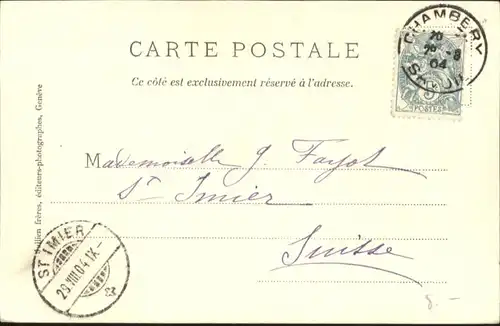 CHAMBERY
04
CARTE POSTALE
Ce côté est exclusivement réservé à l'adresse.
POSTES
Mademoiselle J. Fayot
St Imier
Suisse
ST IMIER
29.VIII.04.IX-
frères, éditeurs-photographes, Genève